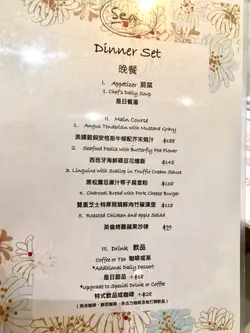 Dinner Set
晚餐
I. Appetizer 前菜
1. Chef's Daily Soup
是日餐湯
II. Main Course
1. Angus Tenderloin with Mustard Gravy
美國穀飼安格斯牛柳配芥末燒汁 +$188
2. Seafood Paella with Butterfly Pea Flower
西班牙海鮮碟豆花燴飯 $148
3. Linguine with Scallop in Truffle Cream Sauce
黑松露忌廉汁帶子扁意粉 $138
4. Charcoal Bread with Pork Cheese Burger
雙重芝士特厚照燒鮮肉竹碳漢堡 $118
5. Roasted Chicken and apple Salad
英倫烤雞蘋果沙律 $99
III. Drink 飲品
Coffee or Tea 咖啡或茶
*Additional Daily Dessert
是日甜品 +$18
*Upgrade to Special Drink or Coffee
特式飲品或咖啡 +$28